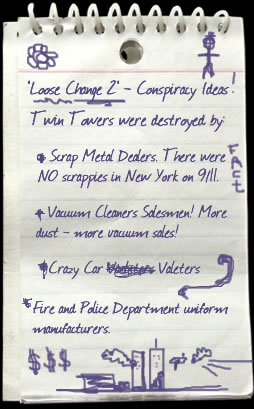 'Loose Change 2' - Conspiracy Ideas!
Twin Towers were destroyed by:
Scrap Metal Dealers. There were
NO scrappies in New York on 9/11.
FACT
Vacuum Cleaners Salesmen! More
dust - more vacuum sales!
Crazy Car Valeters
Fire and Police Department uniform
manufacturers.
$ $ $